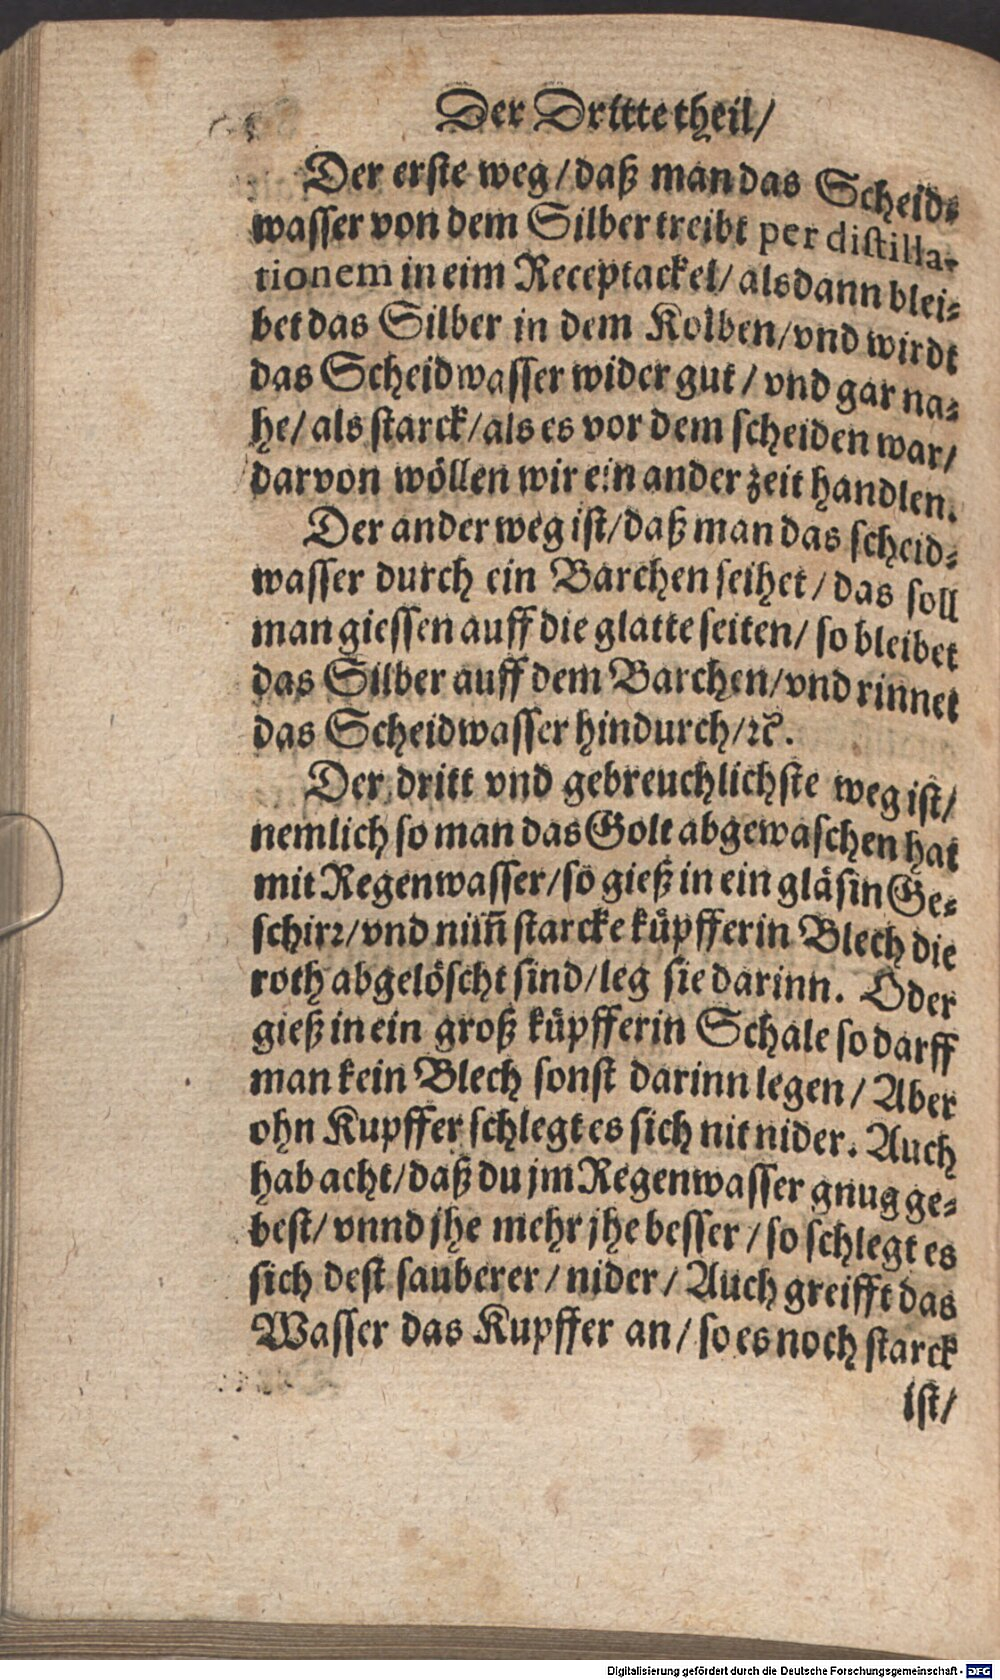 Der Dritte theil/
Der erste weg/daß man das Scheid⸗
wasser von dem Silber treibt per distilla-
tionem in eim Receptackel/alsdann blei⸗
bet das Silber in dem Kolben/vnd wirdt
das Scheidwasser wider gut/vnd gar na⸗
he/als starck/als es vor dem scheiden war/
darvon wöllen wir ein ander zeit handlen.
Der ander weg ist/daß man das scheid⸗
wasser durch ein Barchen seihet/das soll
man giessen auff die glatte seiten/so bleibet
das Silber auff dem Barchen/vnd rinnet
das Scheidwasser hindurch/ꝛc̃.
Der dritt vnd gebreuchlichste weg ist/
nemlich so man das Golt abgewaschen hat
mit Regenwasser/so gieß in ein gläsin Ge⸗
schirꝛ/vnd nim̃ starcke küpfferin Blech die
roth abgelöscht sind/leg sie darinn. Oder
gieß in ein groß küpfferin Schale so darff
man kein Blech sonst darinn legen/Aber
ohn Kupffer schlegt es sich nit nider. Auch
hab acht/daß du jm Regenwasser gnug ge⸗
best/vnnd jhe mehr jhe besser/so schlegt es
sich dest sauberer/nider/Auch greifft das
Wasser das Kupffer an/so es noch starck
ist/
Digitalisierung gefördert durch die Deutsche Forschungsgemeinschaft - DFG